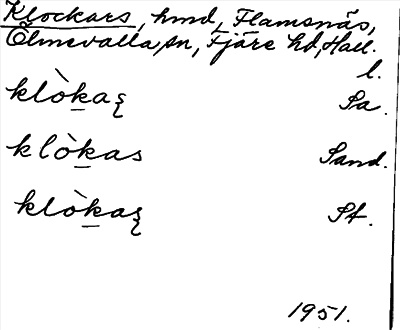 Klockars, hmd, Flamsnäs,
Ölmevalla sn, Fjäre hd, Hall.
l.
klòkaʂ Sa.
klòkas Sand.
klòkaʂ St.
1951.